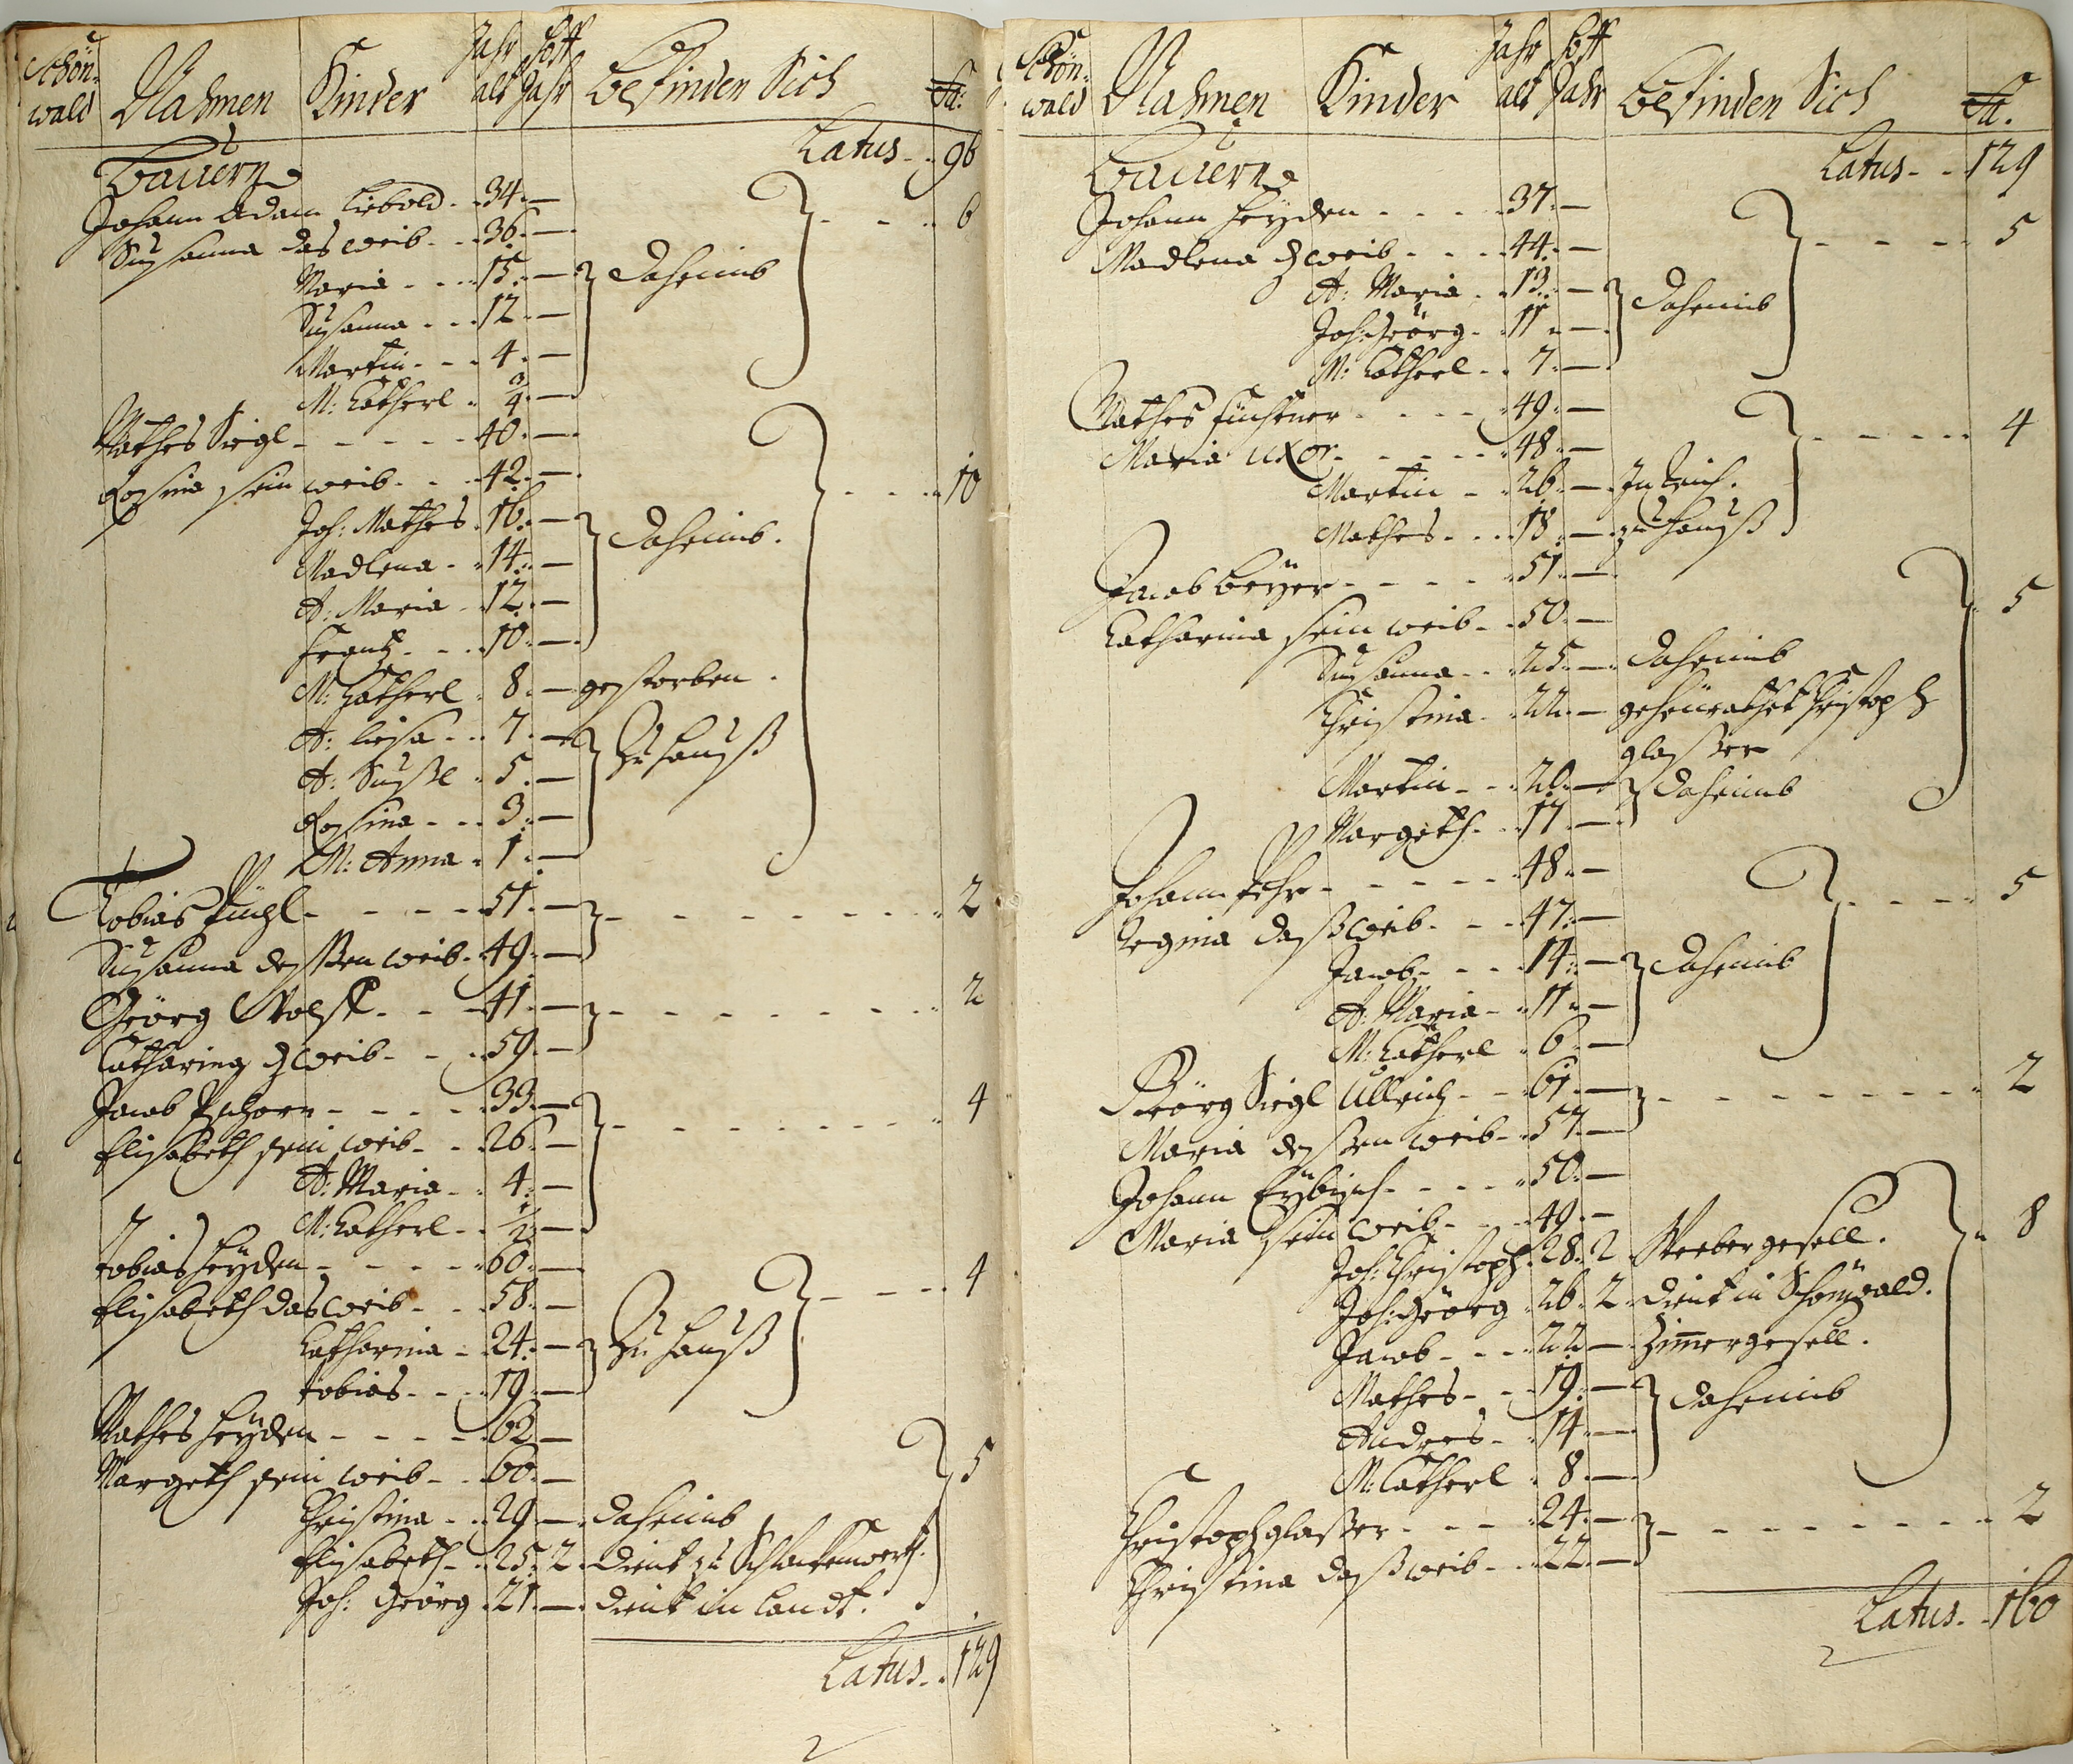 Schön-
wald Nahmen Kinder Jahr alt Hoff Jahr Befinden Sich Sa:
Latus - 96
Bauern
Johann Adam Liebold - 34 - 6
Susanna das weib - 36 -
Maria - 15 - daheimb
Susanna - 12 -
Martin - 4 -
M: Catherl - 3/4 -
Mathes Siegl - 40 - 10
Rosina sein weib - 42 -
Joh: Mathes - 16 - daheimb.
Madlena - 14 -
A: Maria - 12 -
Frantz - 10 -
M: Catherl - 8 - gestorben.
A: Liesa - 7 - Zu hauß
A: Sußl - 5 -
Rosina - 3 -
M: Anna - 1 -
Tobias - 51 - 2
Susanna dessen weib - 49 -
Geörg Wolf - 41 - 2
Catharina d weib - 59 -
Jacob - 33 - 4
Elisabeth sein weib - 26 -
A: Maria - 4 -
M: Catherl - 1/2 -
Tobias Heÿden - 60 - 4
Elisabeth das weib - 58 -
Catharina - 24 - Zu hauß
Tobias - 19 -
Mathes Heÿden - 62 - 5
Margeth sein weib - 60 -
Christina - 29 - daheimb
Elisabeth - 25 - 2 - dient zu Schlackenwerth.
Joh: Geörg - 21 - dient im Landt.
Latus - 129
Schön-
wald Nahmen Kinder Jahr alt Hoff Jahr Befinden Sich Sa.
Latus - 129
Bauern
Johann Heÿden - 37 - 5
Madlena d weib - 44 -
A: Maria - 13 - daheimb
Joh: Geörg - 11 -
M: Catherl - 7 -
Mathes - 49 - 4
Maria uxor - 48 -
Martin - 26 - In Reich.
Mathes - 18 - zu hauß
Jacob Beÿer - 51 - 5
Catharina sein weib - 50 -
Susanna - 25 - daheimb
Christina - 22 - geheürathet Christoph
glasser
Martin - 20 - daheimb
Margeth - 17 -
Johann - 48 - 5
Regina daß weib - 47 -
Jacob - 14 - daheimb
A: Maria - 11 -
M: Catherl - 6 -
Geörg Siegl Ullrich - 61 - 2
Maria dessen weib - 57 -
Johann - 50 - 8
Maria sein weib - 49 -
Joh: Christoph - 28 - 2 Weeber gesell.
Joh: Geörg - 26 - 2 - dient in Schönwald.
Jacob - 22 - Zimmer gesell.
Mathes - 19 - daheimb
Andres - 14 -
M: Catherl - 8 -
Christoph glasser - 24 - 2
Christina daß weib - 22 -
Latus - 160